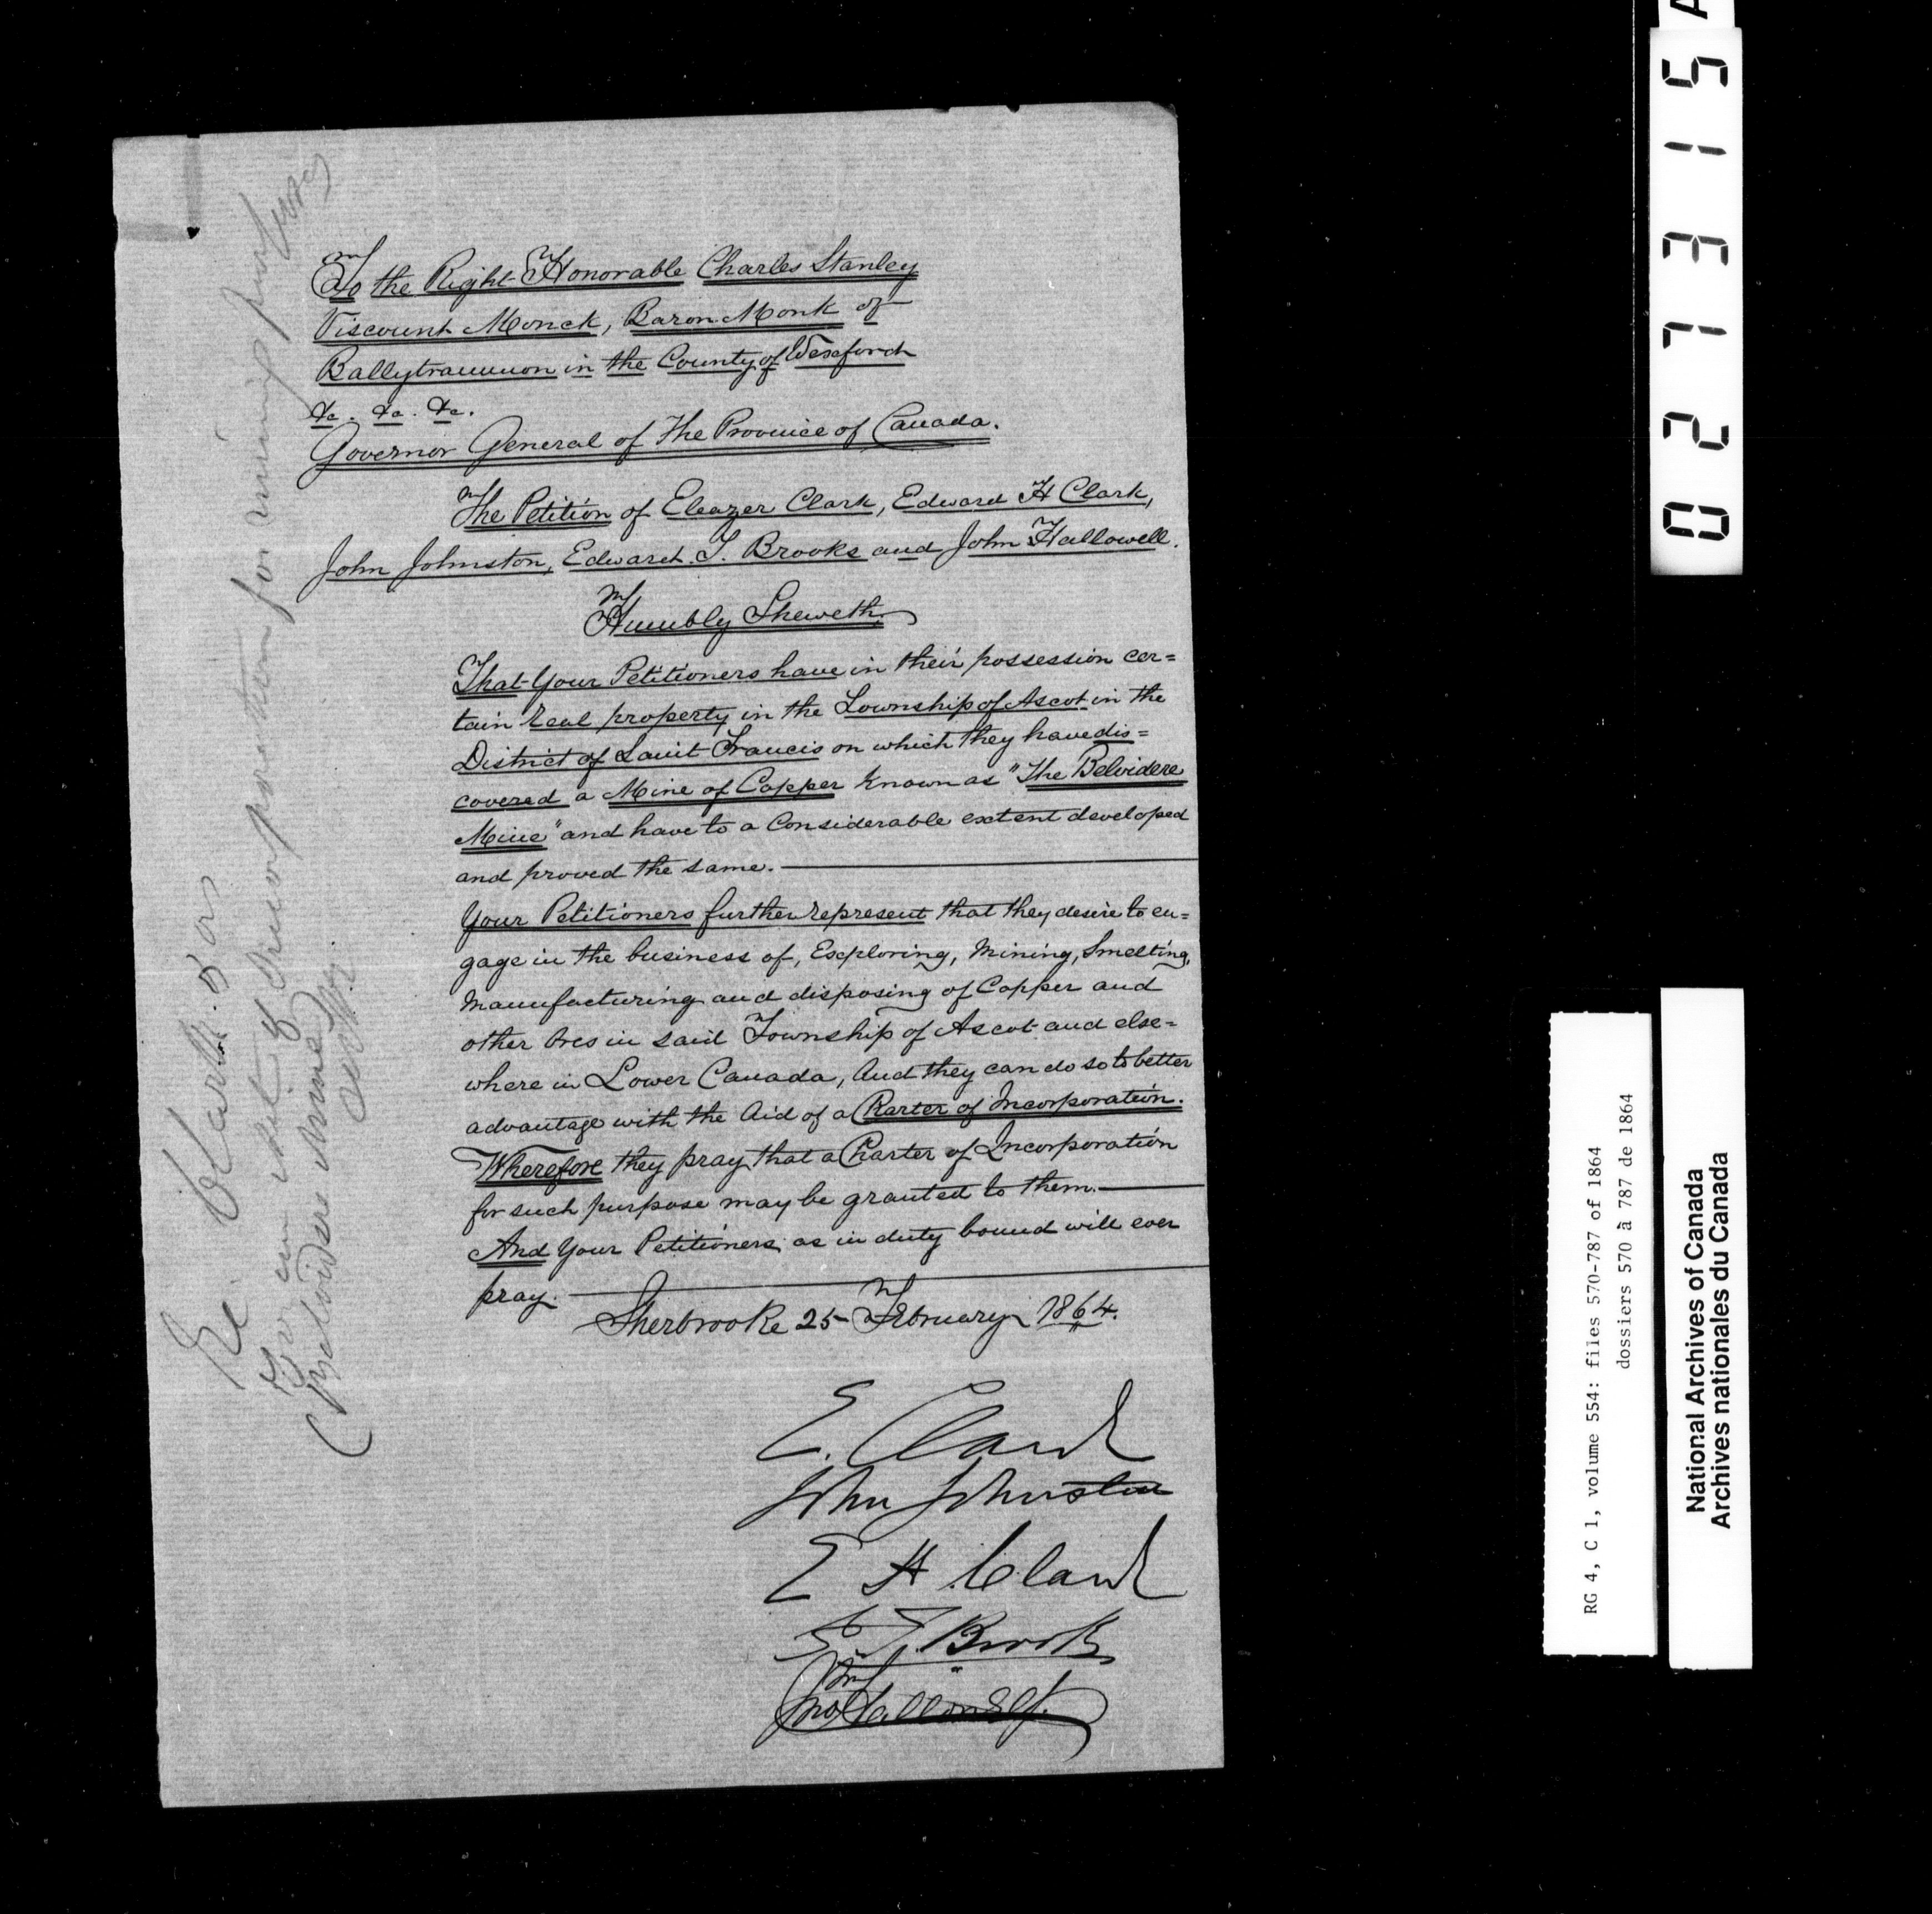 To the Right Honorable Charles Stanley
Viscount Monck, Baron Monk of
Ballytrammon in the County of Wexford
&c. &c. &c.
Governor General of the Province of Canada.
The Petition of Eleazer Clark, Edward H Clark,
John Johnston, Edward T. Brooks and John Hallowell.
Humbly Sheweth,
That Your Petitioners have in their possession cer=
tain real property in the Township of Ascot in the
District of Saint Francis on which they have dis=
covered a Mine of Copper known as "The Belvidere
Mine" and have to a Considerable extent developed
and proved the same.
Your Petitioners further represent that they desire to en=
gage in the business of, Exploring, Mining, Smelting,
Manufacturing and disposing of Copper and
other Ores in said Township of Ascot and else=
where in Lower Canada, And they can do so to better
advantage with the Aid of a Charter of Incorporation.
Wherefore they pray that a Charter of Incorporation
for such purpose may be granted to them.
And Your Petitioners as in duty bound will ever
pray.
Sherbrooke 25 February 1864.
E. Clark
John Johnston
E H Clark
E. T. Brooks
Jno Hallowell
El. Clark & ors
For an Act of Incorporation for mining purposes
(Belvidere Mine)
027315
RG 4, C 1, volume 554: files 570-787 of 1864
dossiers 570 à 787 de 1864
National Archives of Canada
Archives nationales du Canada